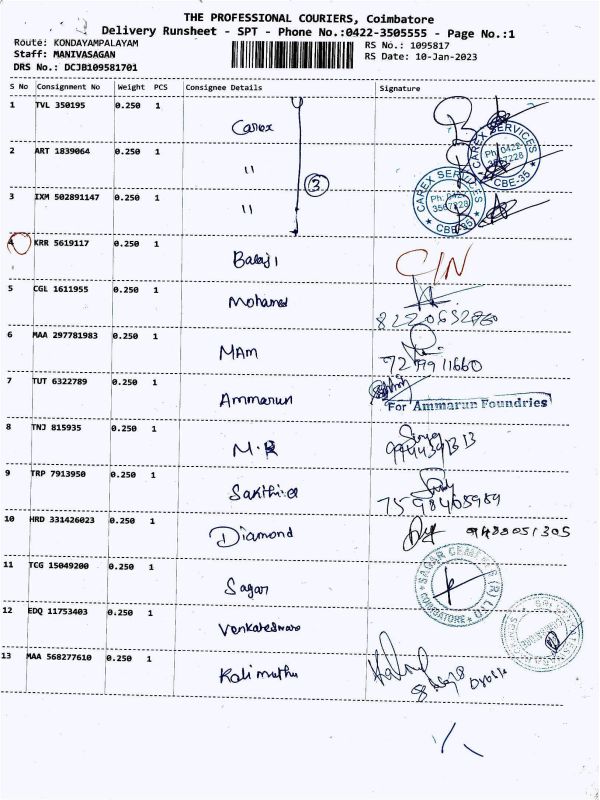 THE PROFESSIONAL COURIERS, Coimbatore
Delivery Runsheet - SPT - Phone No.:0422-3505555 - Page No.:1
Route: KONDAYAMPALAYAM
Staff: MANIVASAGAN
DRS No.: DCJB109581701
RS No.: 1095817
RS Date: 10-Jan-2023
S No Consignment No Weight PCS Consignee Details Signature
1 TVL 350195 0.250 1 Carex
2 ART 1839064 0.250 1 "
3 IXM 502891147 0.250 1 "
3
CAREX SERVICES Ph: 0422 3567228 CBE-35
CAREX SERVICES Ph: 0422 3567228 CBE-35
4 KRR 5619117 0.250 1 Balaji C/N
5 CGL 1611955 0.250 1 Mohamed
6 MAA 297781983 0.250 1 MAM
7 TUT 6322789 0.250 1 Ammarun For Ammarun Foundries
8 TNJ 815935 0.250 1
9 TRP 7913950 0.250 1
10 HRD 331426023 0.250 1 Diamond 9488051305
11 TCG 15049200 0.250 1 Sagar
COIMBATORE
12 EDQ 11753403 0.250 1 Venkateswara
13 MAA 568277610 0.250 1 Kalimuthu